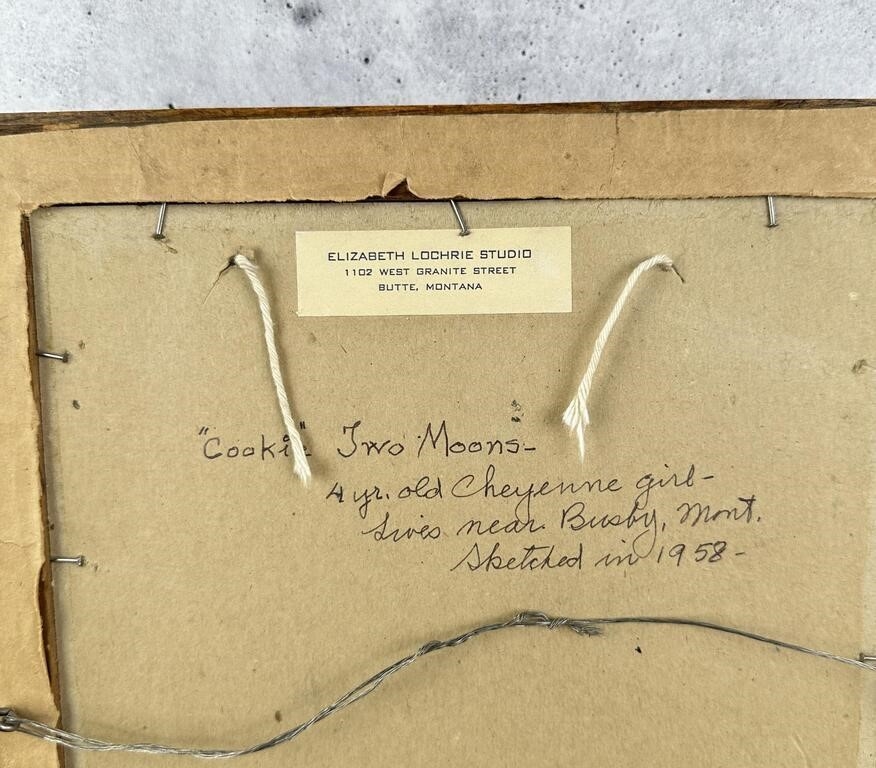 ELIZABETH LOCHRIE STUDIO
1102 WEST GRANITE STREET
BUTTE, MONTANA
"Cookie" Two Moons-
4 yr. old Cheyenne girl-
Lives near Busby, Mont.
Sketched in 1958-